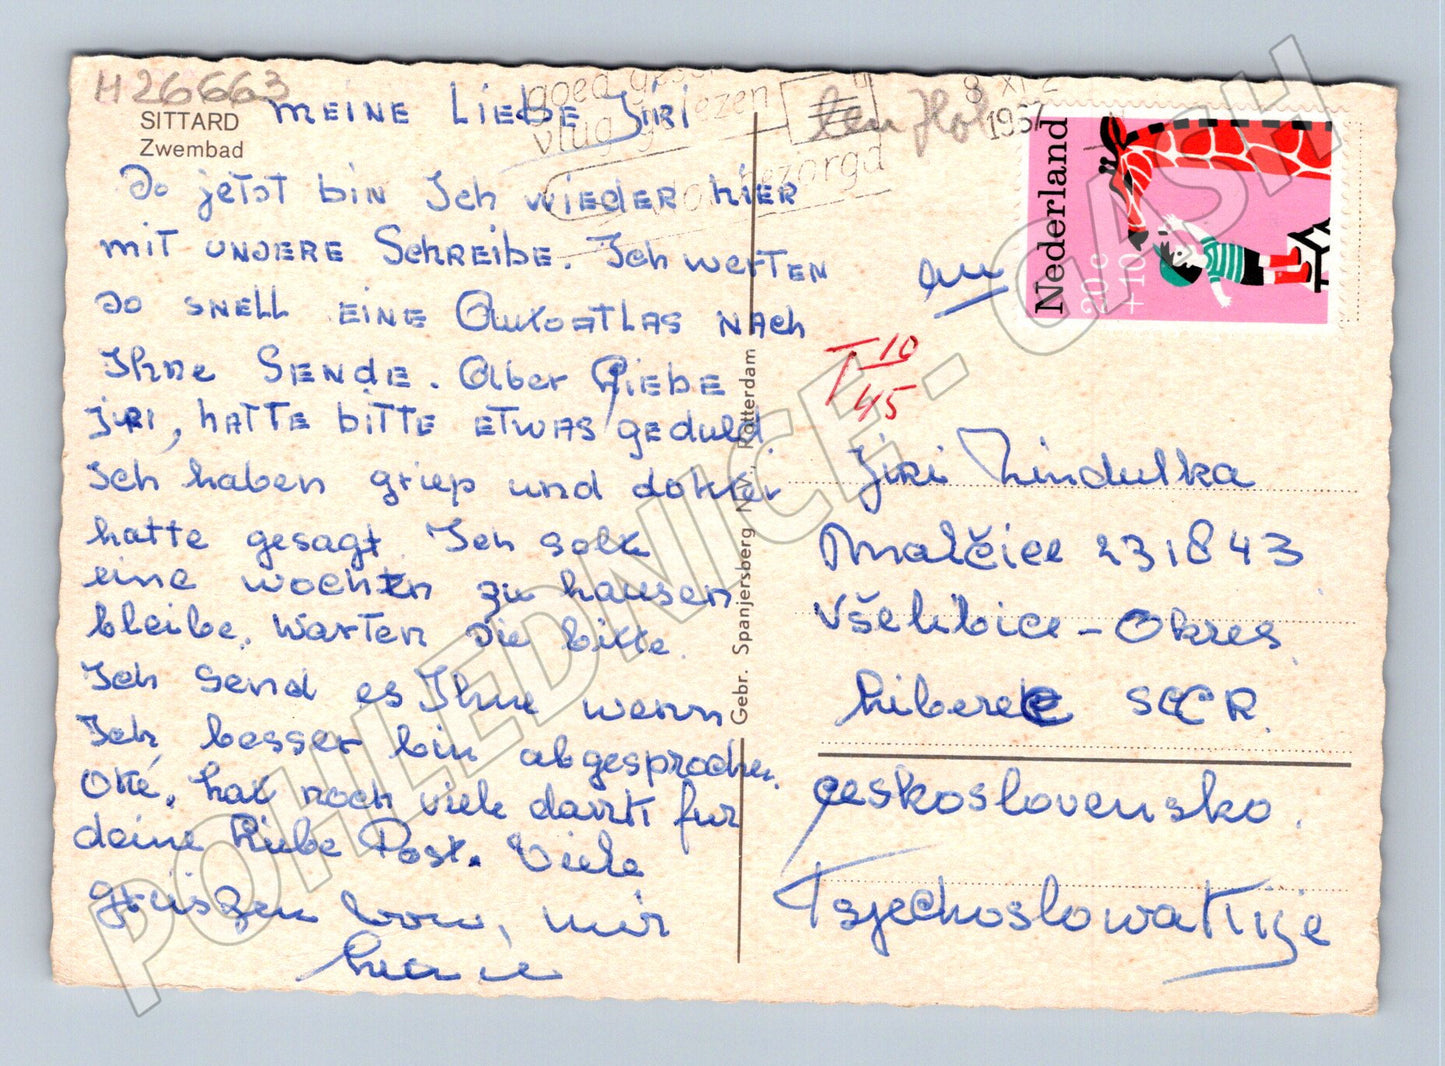 H 26663
SITTARD
Zwembad
MEINE LIEBE JIRI
So jetst bin Ich WIEDER HIER
MIT UNSERE SCHREIBE. Ich werTEN
SO SNELL EINE AUTOATLAS NACH
Ihne SENDE. Aber LIEBE
JIRI, HATTE BITTE ETWAS geduld
Ich haben griep und dokter
hatte gesagt Ich solt
eine wochen zu hausen
bleibe. Warten Sie bitte.
Ich Send es Ihne wenn
Ich besser bin abgesprochen.
Oké. hat noch viele dank fur
deine Liebe Post. Viele
grüszen von, mir
goed
vlug gelezen
bezorgd
8 XI
1967
Nederland
20 c
+10
an
T 10
45
Gebr. Spanjersberg N.V., Rotterdam
Jiri Zindulka
Malčice 231843
Všelibice - Okres
Liberec SCCR.
Ceskoslovensko.
TsjechoslowaKije
POHLEDNICE - CASH